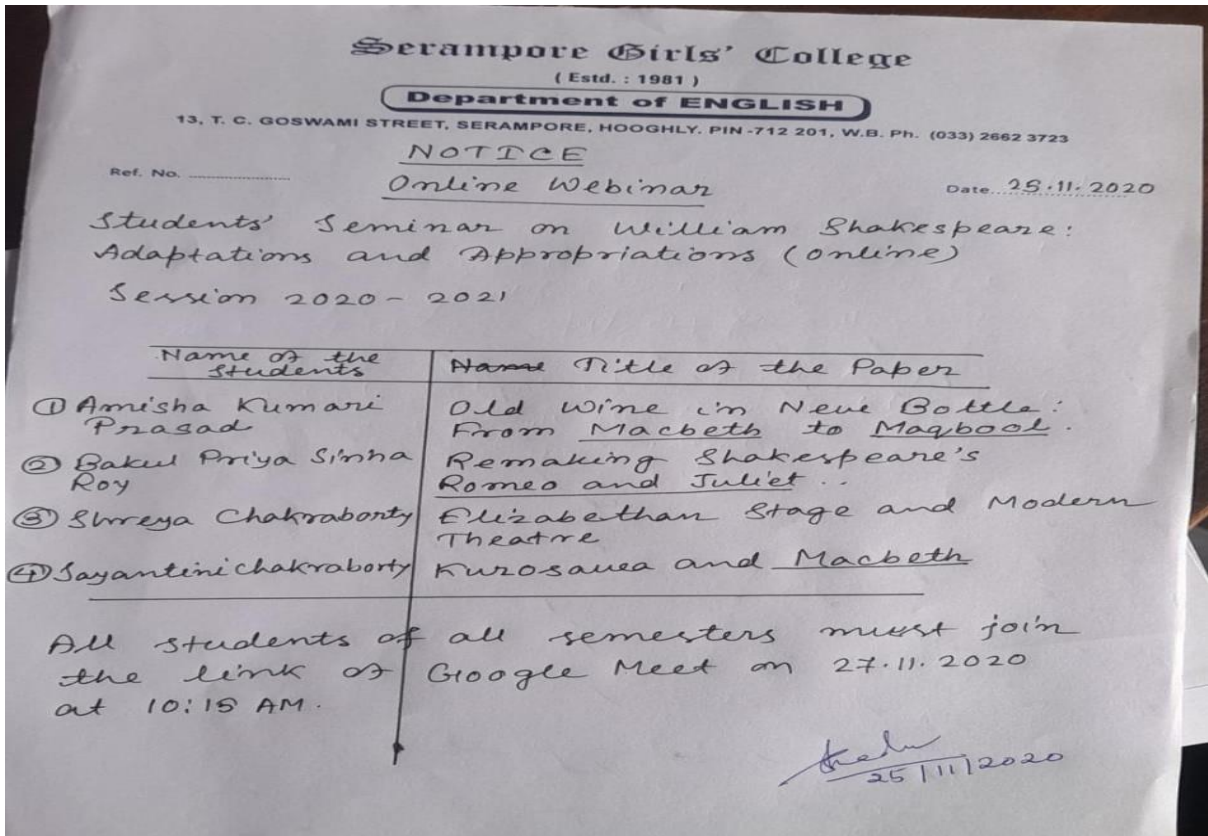 Serampore Girls' College
( Estd. : 1981 )
Department of ENGLISH
13, T. C. GOSWAMI STREET, SERAMPORE, HOOGHLY. PIN -712 201, W.B. Ph. (033) 2662 3723
NOTICE
Ref. No. ........................ Online Webinar Date...25.11.2020
Students' Seminar on William Shakespeare:
Adaptations and Appropriations (online)
Session 2020 - 2021
Name of the Students | Name Title of the Paper
① Amisha Kumari Old Wine in New Bottle:
Prasad From Macbeth to Maqbool.
② Bakul Priya Sinha Remaking Shakespeare's
Roy Romeo and Juliet ..
③ Shreya Chakraborty Elizabethan Stage and Modern
Theatre
④ Sayantini Chakraborty Kurosawa and Macbeth
All students of all semesters must join
the link of Google Meet on 27.11.2020
at 10:15 AM.
25/11/2020